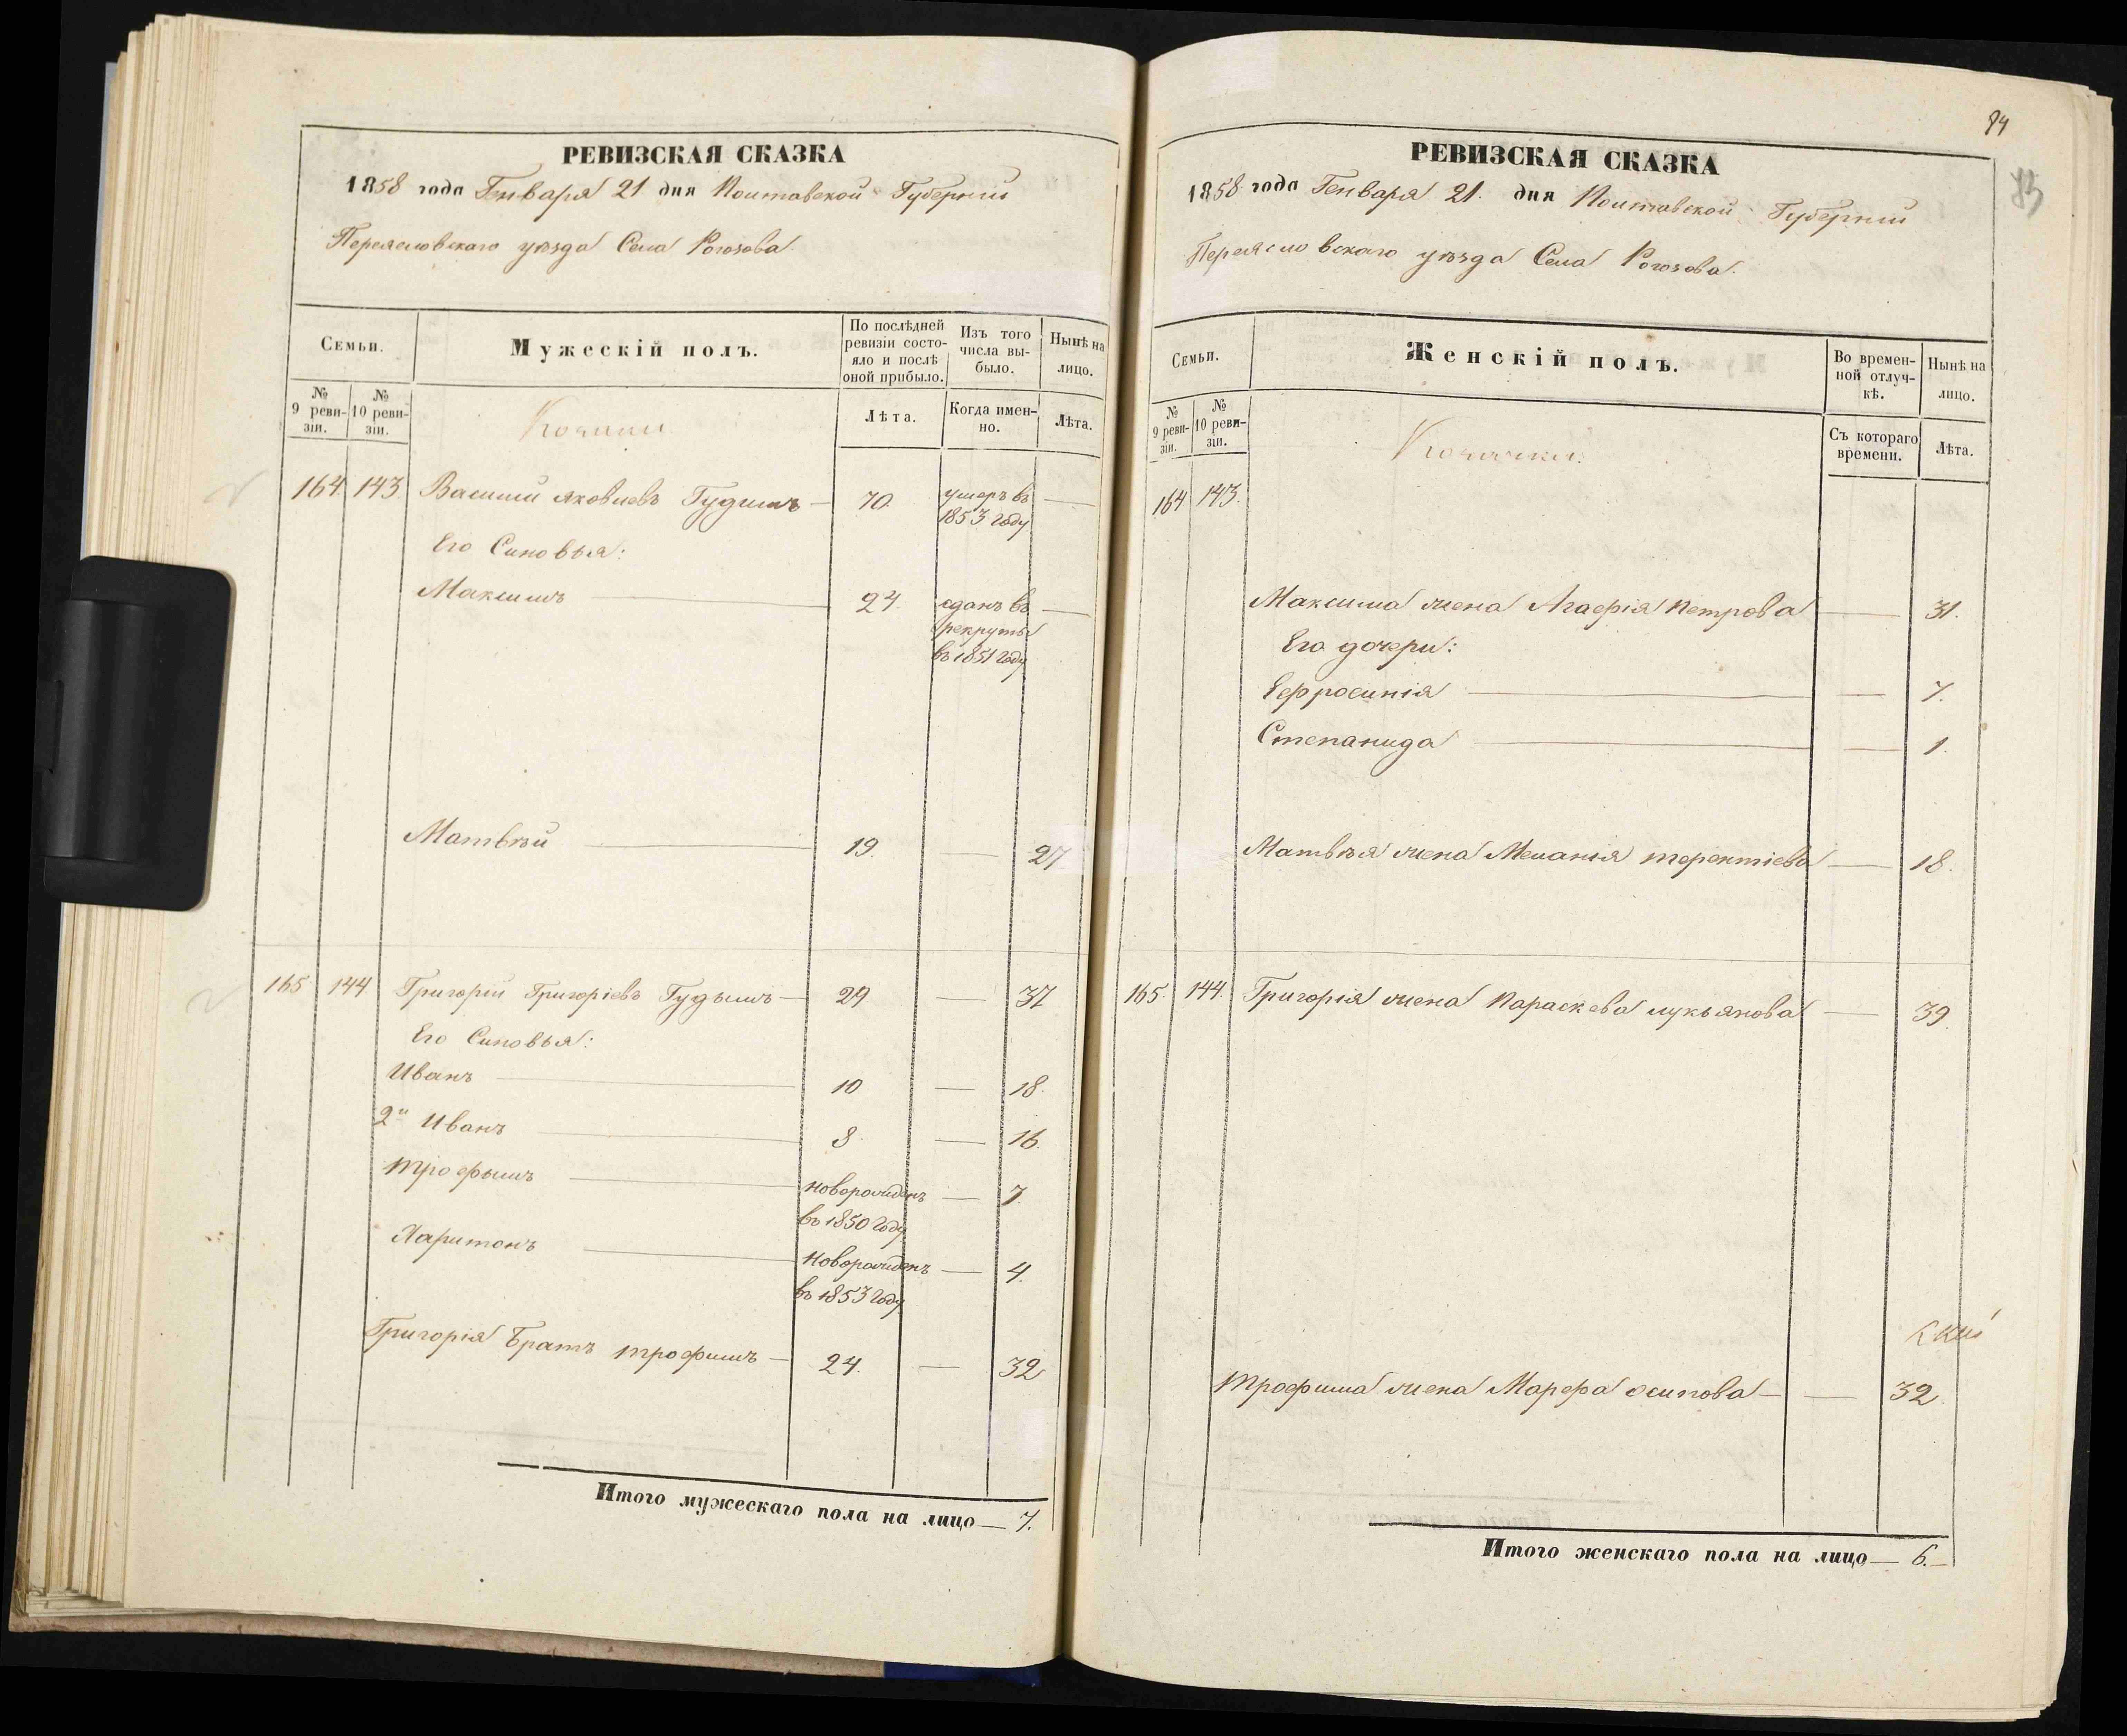 РЕВИЗСКАЯ СКАЗКА
1858 года Генваря 21 дня Полтавской Губерніи
Переясловскаго уѣзда Села Рогозова.
Семьи.
Мужескій полъ.
По послѣдней ревизіи состояло и послѣ оной прибыло.
Изъ того числа выбыло.
Нынѣ на лицо.
№ 9 ревизіи.
№ 10 ревизіи.
Козаки
Лѣта.
Когда именно.
Лѣта.
164 143 Василий яковлевъ Гудимъ — 70. умеръ въ 1853 году —
Его Синовья:
Максимъ — 24. сданъ въ рекруты въ 1851 году —
Матвѣй — 19. — 27
165 144. Григорій Григоріевъ Гудымъ — 29 — 37
Его Синовья:
Иванъ — 10 — 18.
2й Иванъ — 8. — 16.
Трофымъ — новорожденъ въ 1850 году — 7
Харитонъ — новорожденъ въ 1853 году — 4.
Григорія Братъ трофимъ — 24. — 32
Итого мужескаго пола на лицо — 7.
84
83
РЕВИЗСКАЯ СКАЗКА
1858 года Генваря 21. дня Полтавской Губерніи
Переясловскаго уѣзда Села Рогозова.
Семьи.
Женскій полъ.
Во временной отлучкѣ.
Нынѣ на лицо.
№ 9 ревизіи.
№ 10 ревизіи.
Козачки.
Съ котораго времени.
Лѣта.
164 143.
Максима жена Агафія Петрова — 31.
Его дочери:
Ефросинія — — 7.
Степанида — — 1.
Матвѣя жена Меланія терентіева — 18.
165. 144. Григорія жена Параскева лукьянова — 39.
Трофима жена Марфа осипова — — 32.
Итого женскаго пола на лицо — 6. —